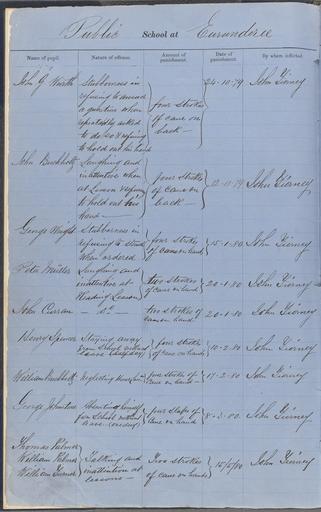 Public School at Eurunderee
Name of pupil. Nature of offence. Amount of punishment. Date of punishment. By whom inflicted.
John G Worth Stubborness in refusing to answer a question when repeatedly asked to do so & refusing to hold out his hand four strokes of cane on back — 24-10-79 John Tierney
John Buchholtz Laughing and inattentive when at Lesson & refusing to hold out his hand — four strokes of cane on back — John Tierney
George Wright Stubborness in refusing to when ordered four strokes of cane on hand 15-1-80 John Tierney
Peter Müller Laughing and inattention at Reading Lesson two strokes of cane on hand 20-1-80 John Tierney
John Curran — do — two strokes of cane on hand 20-1-80 John Tierney
Henry Spencer Staying away from School without leave (half day) four strokes of cane on hand 10-2-80 John Tierney
William Buchholtz Neglecting four strokes of cane on hand — 17-2-80 John Tierney
George Johnstone Absenting himself from School without leave four of cane on hand 8-3-80 John Tierney
Thomas Palmer
William Palmer
William Talking and inattention at lessons — Two strokes of cane on hands 15/3/80 John Tierney